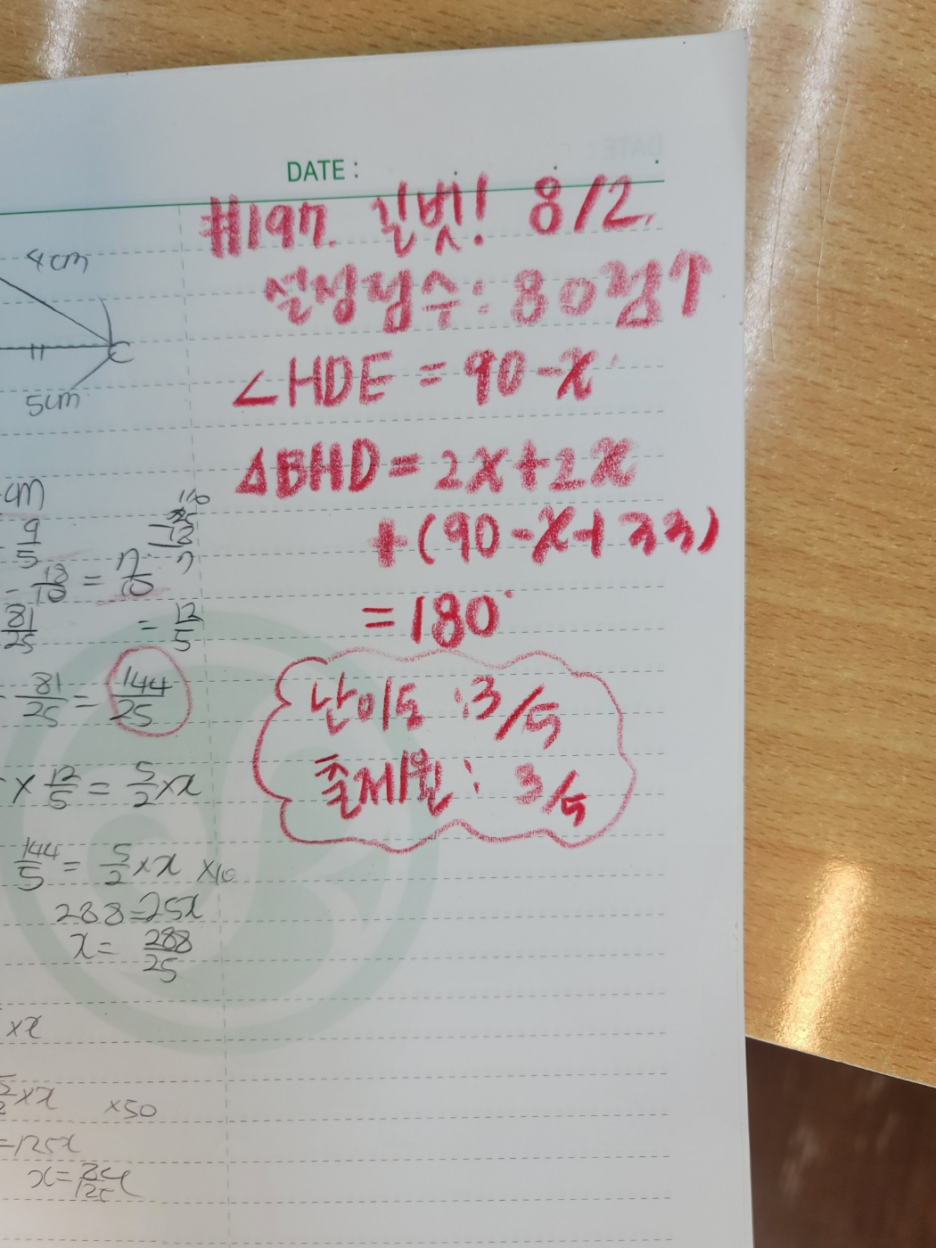 DATE :
#197. 일벗! 8/2.
설정점수 : 80점↑
∠HDE = 90-x
△BHD = 2x+2x
+(90-x+33)
= 180°
난이도 : 3/5
출제원 : 3/5
4cm
C
5cm
cm
9/5
- 18/10 = 7/10
81/25
= 12/5
- 81/25 = 144/25
× 12/5 = 5/2 × x
144/5 = 5/2 × x ×10
288=25x
x = 288/25
×x
5/2 × x ×50
=125x